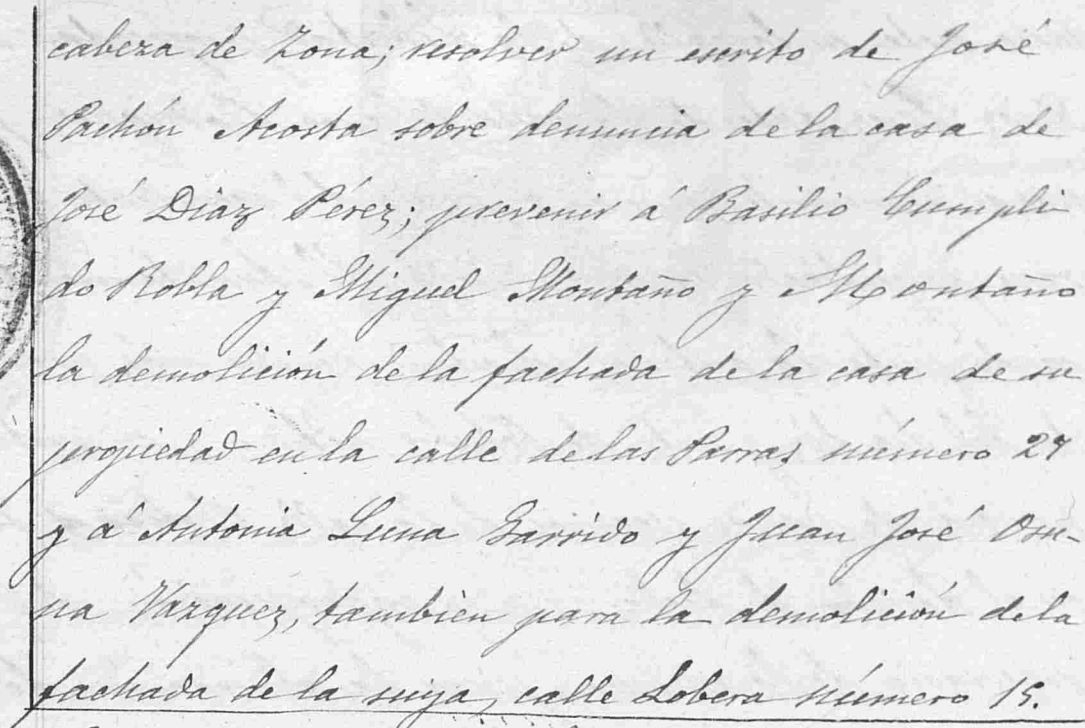 cabeza de Zona; resolver un escrito de José
Pachón Acosta sobre denuncia de la casa de
José Diaz Pérez; prevenir á Basilio Cumpli
do Robla y Miguel Montaño y Montaño
la demolición de la fachada de la casa de su
propiedad en la calle de las Parras número 27
y á Antonia Luna Garrido y Juan José Osu-
na Vazquez, tambien para la demolición de la
fachada de la suya, calle Lobera número 15.